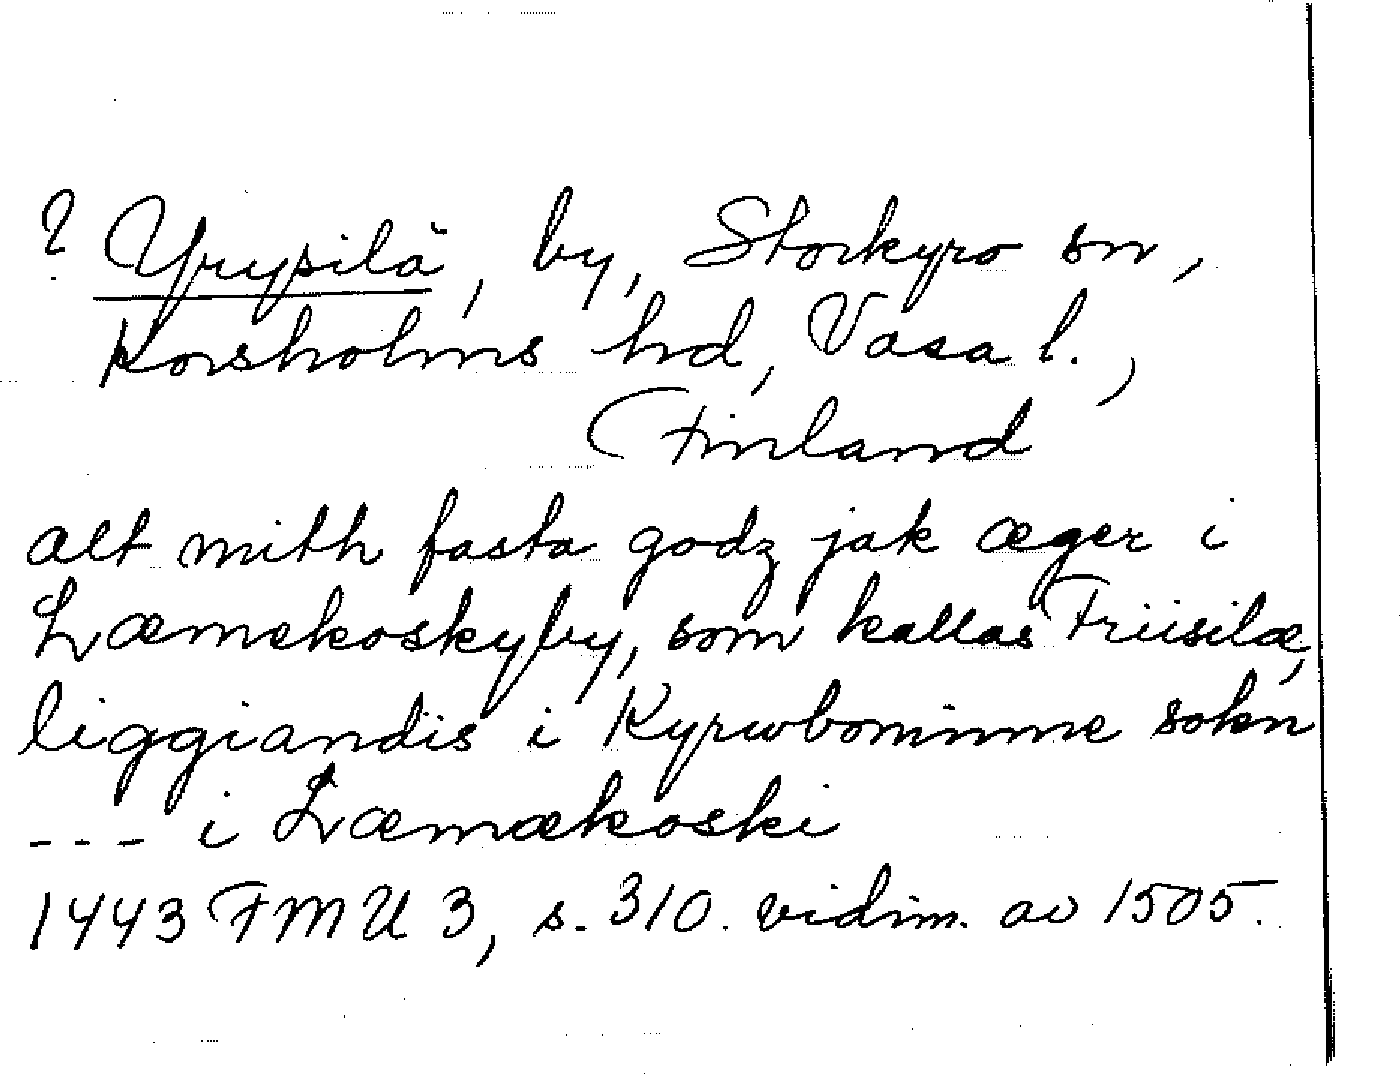 ? Yrypilä, by, Storkyro sn,
Korsholms hd, Vasa l.,
Finland
alt mith fasta godz jak æger i
Læmekoskyby, som kallas Friisilæ,
liggiandis i Kyrwbominne sokn
--- i Læmækoski
1443 FMU 3, s. 310. vidim. av 1505.